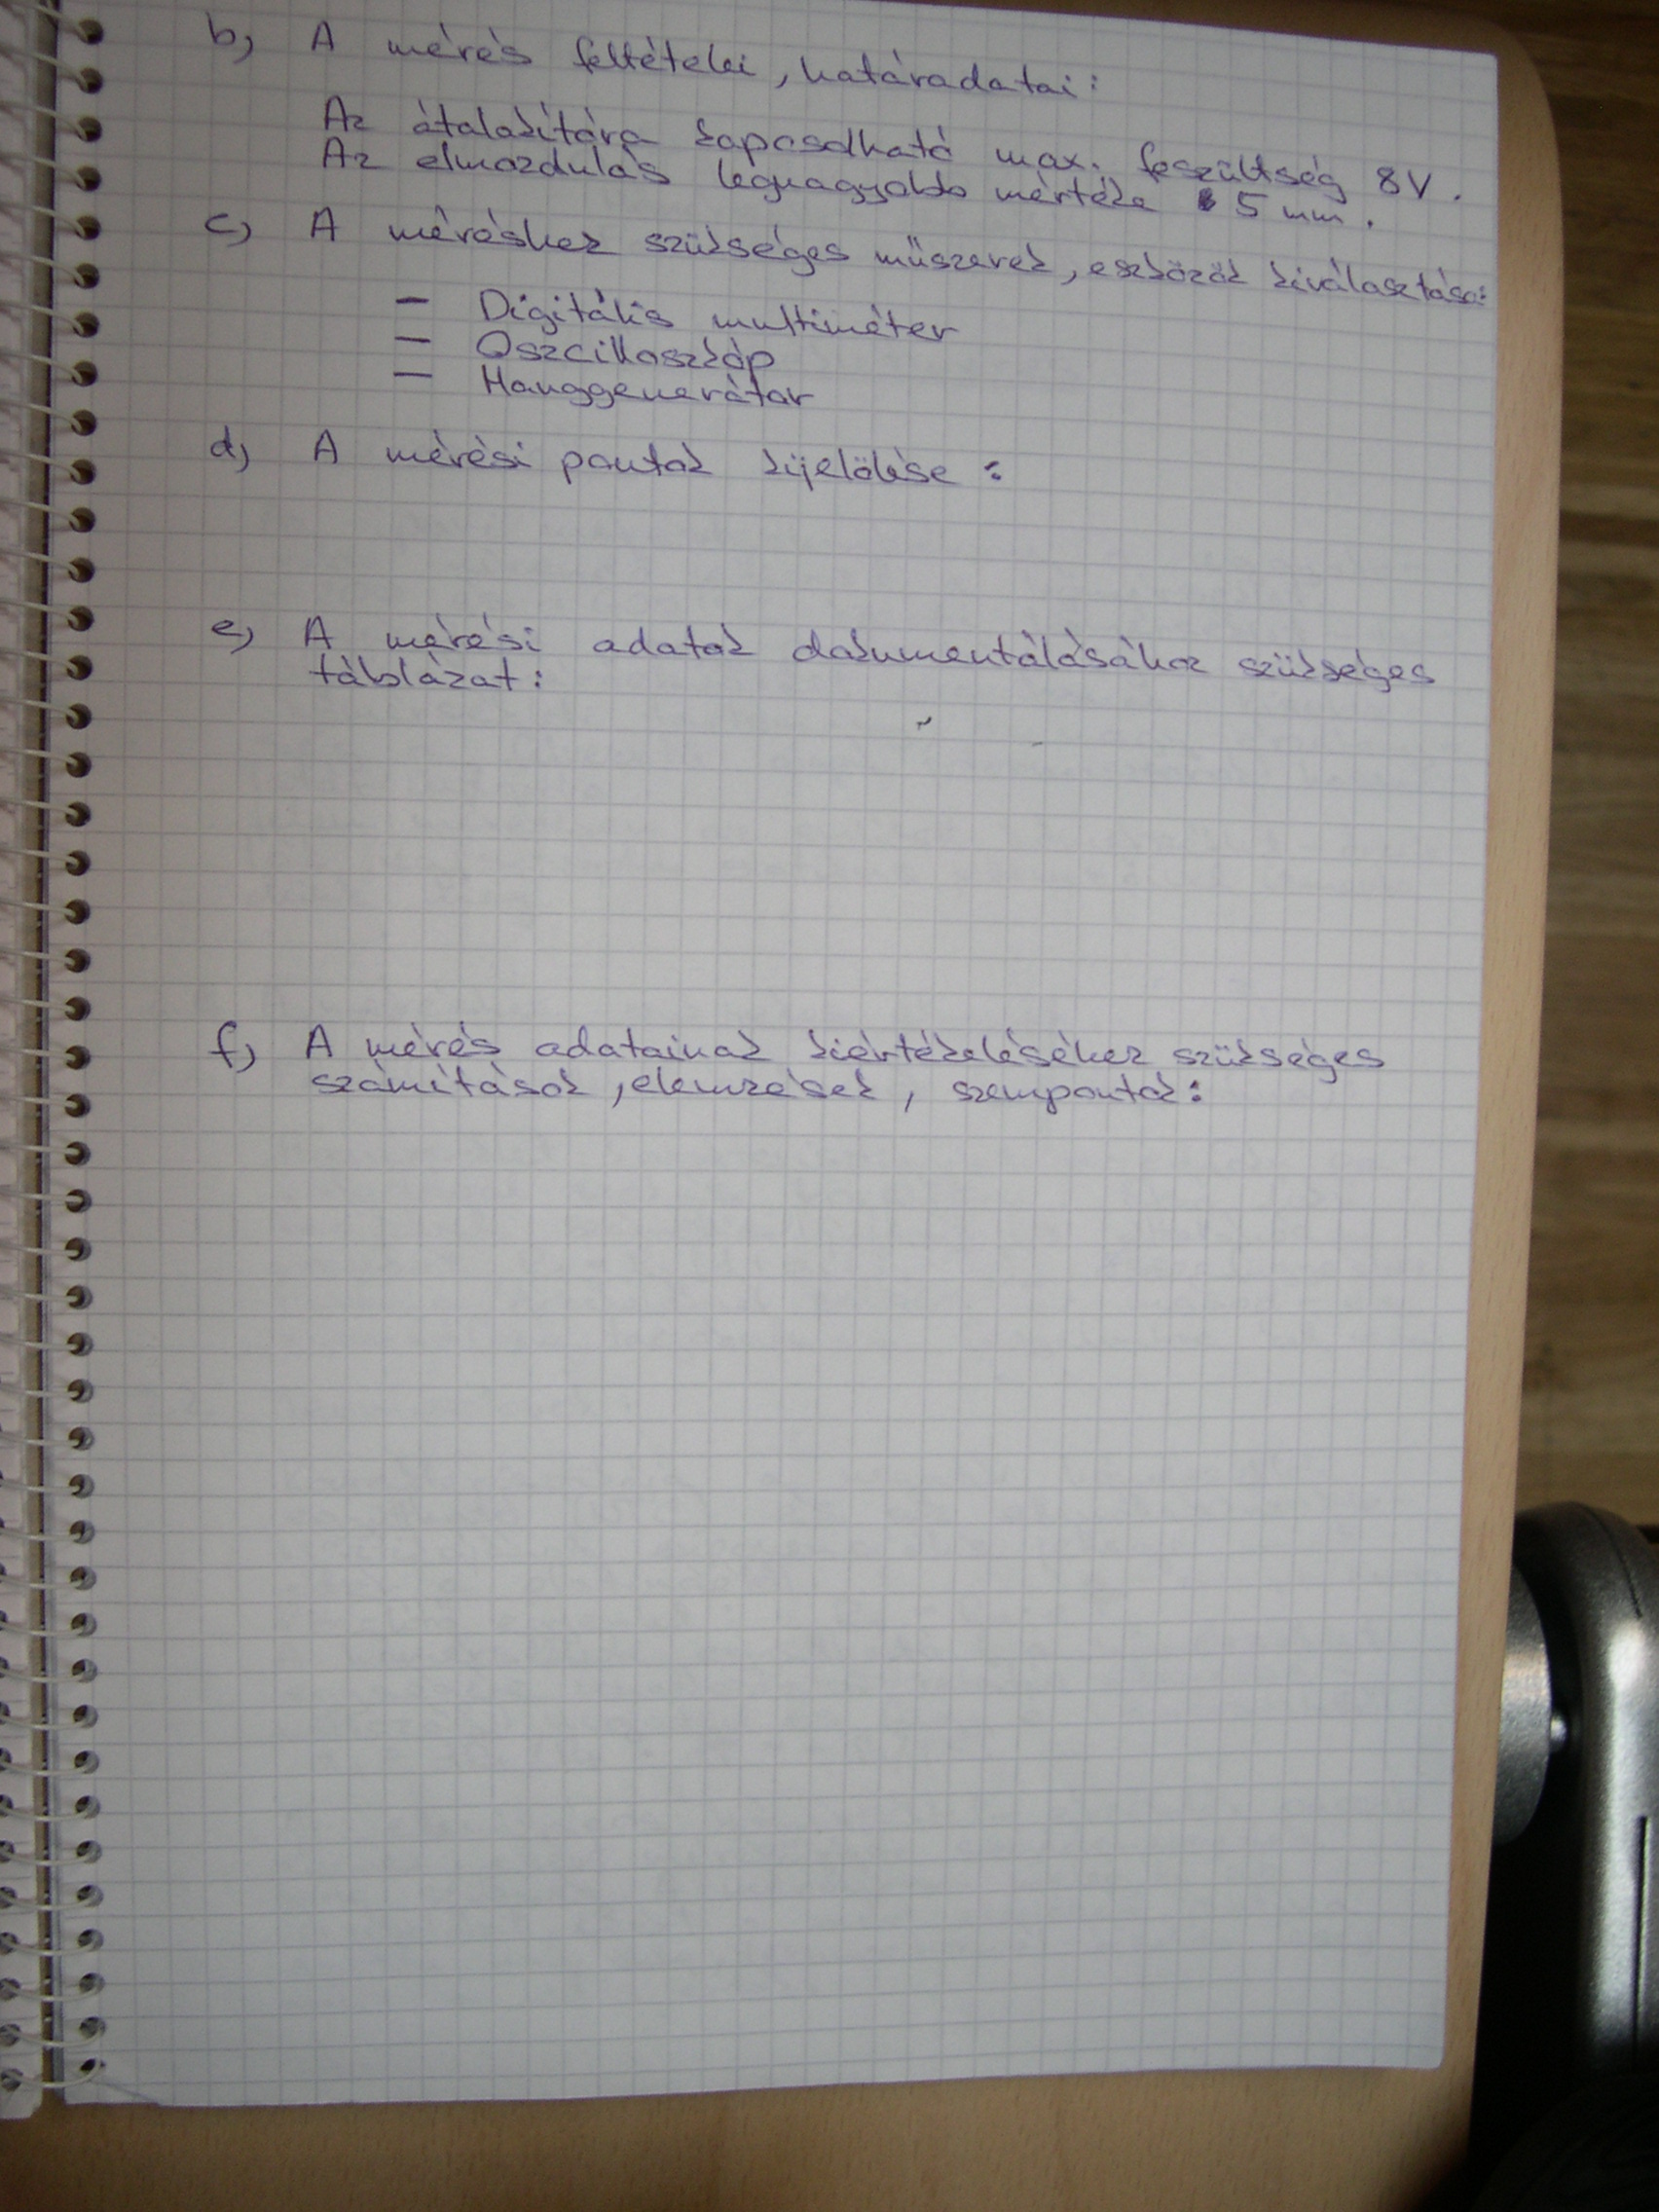 b) A mérés feltételei, határadatai:
Az átalakítóra kapcsolható max. feszültség 8V.
Az elmozdulás legnagyobb mértéke 5 mm.
c) A méréshez szükséges műszerek, eszközök kiválasztása:
– Digitális multiméter
– Oszcilloszkóp
– Hanggenerátor
d) A mérési pontok kijelölése:
e) A mérési adatok dokumentálásához szükséges
táblázat:
f) A mérés adatainak kiértékeléséhez szükséges
számítások, elemzések, szempontok: